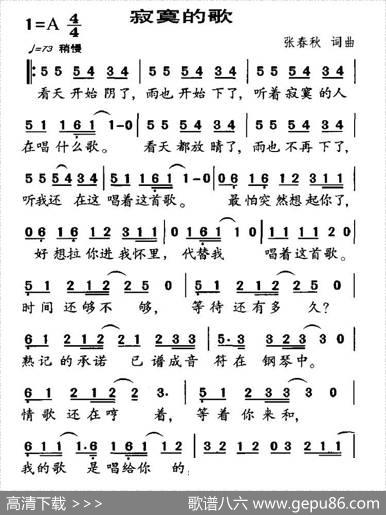 寂寞的歌
1=A 4/4
♩=73 稍慢
张春秋 词曲
55 54 34 | 55 54 34 | 55 54 34
看天开始阴了，雨也开始下了，听着寂寞的人
51 161 1-0 | 55 54 34 | 55 54 34
在唱什么歌。 看天都放晴了，雨也不再下了，
555434 | 51161 1-0 | 55 54 34
听我还 在这唱着这首歌。 最怕突然想起你了，
06 16 12 12 | 0161 0 | 1 1 1110
好想拉你进我怀里，代替我 唱着这首歌。
51 212 252 | 51 2123 30
时间还够不够，等待还有多久？
61 212 21 | 03232 1230
熟记的承诺 已谱成音符在钢琴中。
61 212 2 3· | 51 2125 20
情歌还在哼着，等着你来和，
6111·6 16112 | 32 12 03 2110
我的歌 是唱给你的
高清下载 >>>
歌谱八六 www.gepu86.com